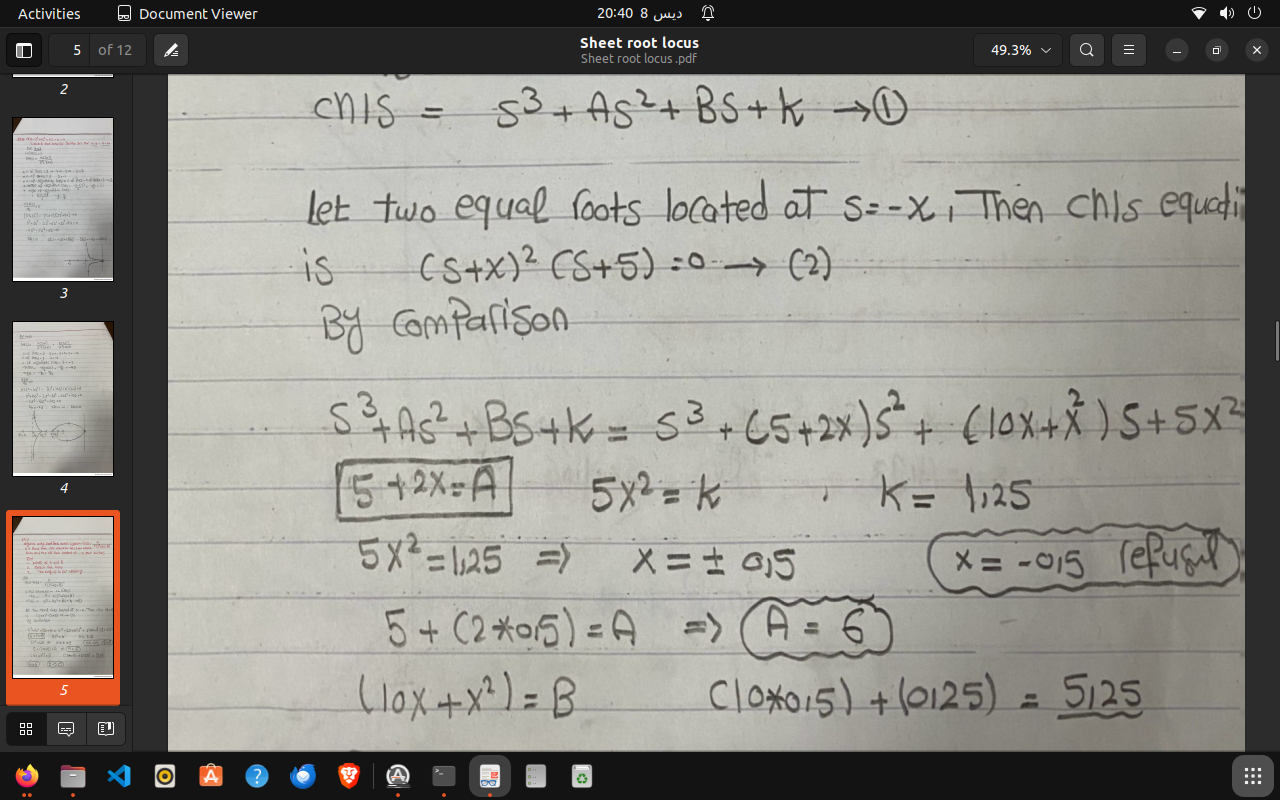 Activities Document Viewer 20:40 8 ديس
5 of 12 Sheet root locus 49.3%
Sheet root locus .pdf
2
3
4
5
ch/s = s³ + As² + Bs + k → ①
Let two equal roots located at s=-x, Then ch/s equati
is (s+x)² (s+5) =0 → (2)
By comparison
S³+As²+Bs+k = s³ + (5+2x)s² + (10x+x²) s+5x²
5+2x=A 5x²=k , k= 1,25
5x²=1,25 => x=± 0,5 x= -0,5 refusul
5 + (2*0,5)=A => A = 6
(10x+x²)=B (10*0,5)+(0,25) = 5,25